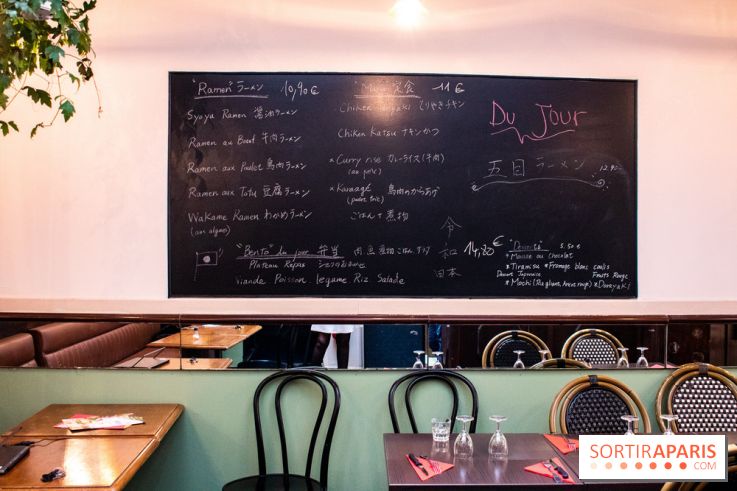 "Ramen" ラーメン 10,90 €
Syoyu Ramen 醤油ラーメン
Ramen au Boeuf 牛肉ラーメン
Ramen aux Poulet 鳥肉ラーメン
Ramen aux Tofu 豆腐ラーメン
Wakame Ramen わかめラーメン
(aux algues)
"Menu" 定食 11 €
Chiken Teriyaki てりやきチキン
Chiken Katsu チキンかつ
*Curry rise カレーライス(牛肉)
*Karaagé 鳥肉のからあげ
ごはん 煮物
"Bento" du jour 弁当 肉 魚 煮物 ごはん サラダ
Plateau Repas
Viande Poisson legume Riz Salade
令和
日本
14,80 €
Du Jour
五目 ラーメン 12.90
"Dessert" 5.50 €
*Mousse au chocolat
*Tiramisu *Fromage blanc coulis
Fruits Rouge
Dessert Japonaise
*Mochi *Dorayaki
SORTIRAPARIS
.COM